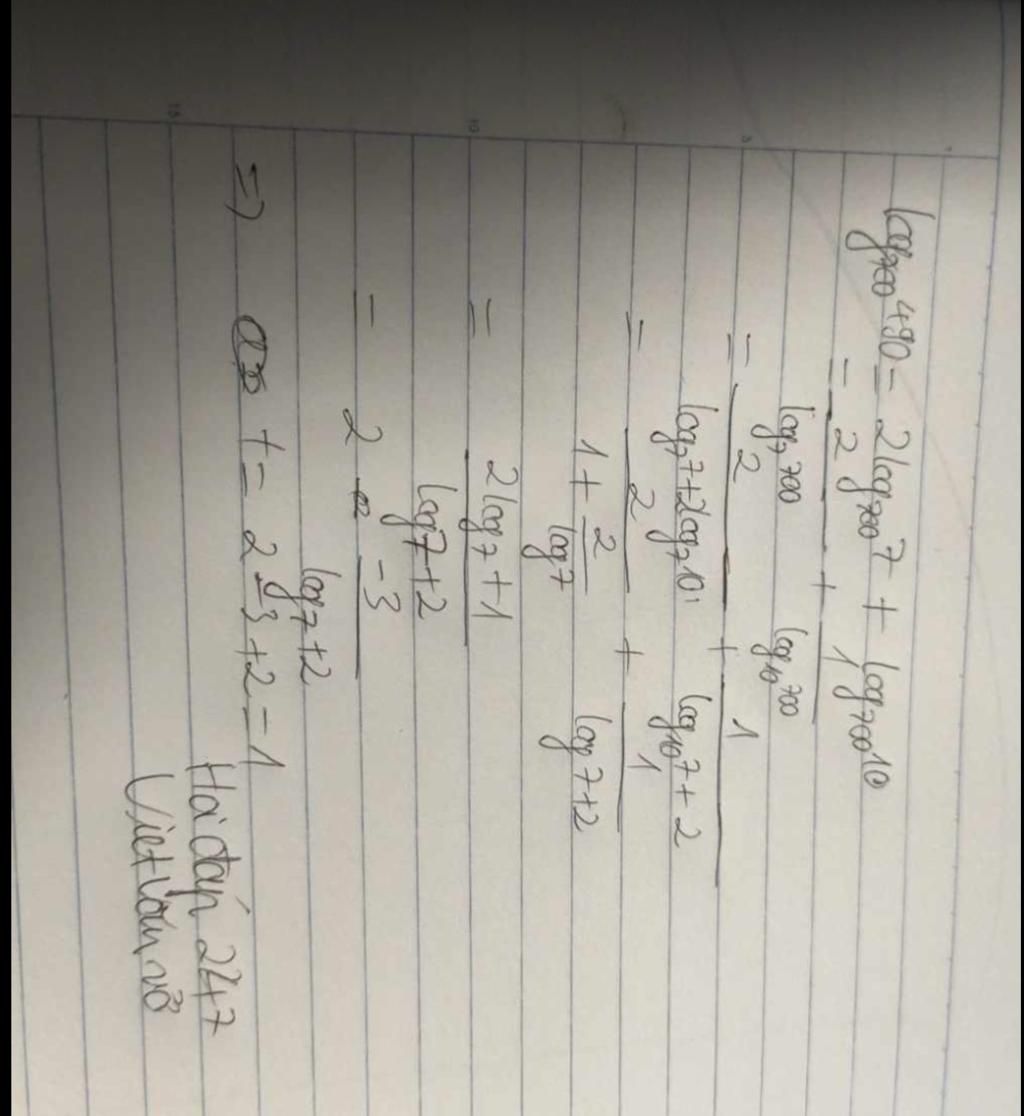 log₇₀₀490 = 2log₇₀₀7 + log₇₀₀10
= 2/(log₇700) + 1/(log₁₀700)
= 2/(log₇7+2log₇10) + 1/(log₁₀7+2)
= 2/(1+2/(log7)) + 1/(log7+2)
= (2log7+1)/(log7+2)
= 2 -3/(log7+2)
=> t = 2-3+2=1
Hoidap 247
Viet vào vở